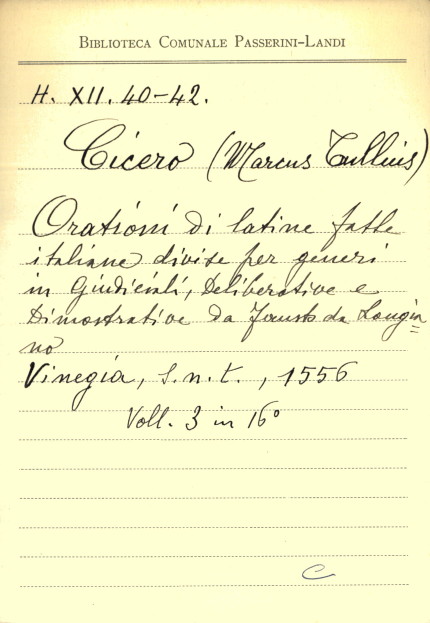 BIBLIOTECA COMUNALE PASSERINI-LANDI
H. XII. 40-42.
Cicero (Marcus Tullius)
Orationi di latine fatte
italiane divise per generi
in Giudiciali, Deliberative e
Dimostrative da Fausto da Longia
no
Vinegia, s.n.t., 1556
Voll. 3 in 16°
C